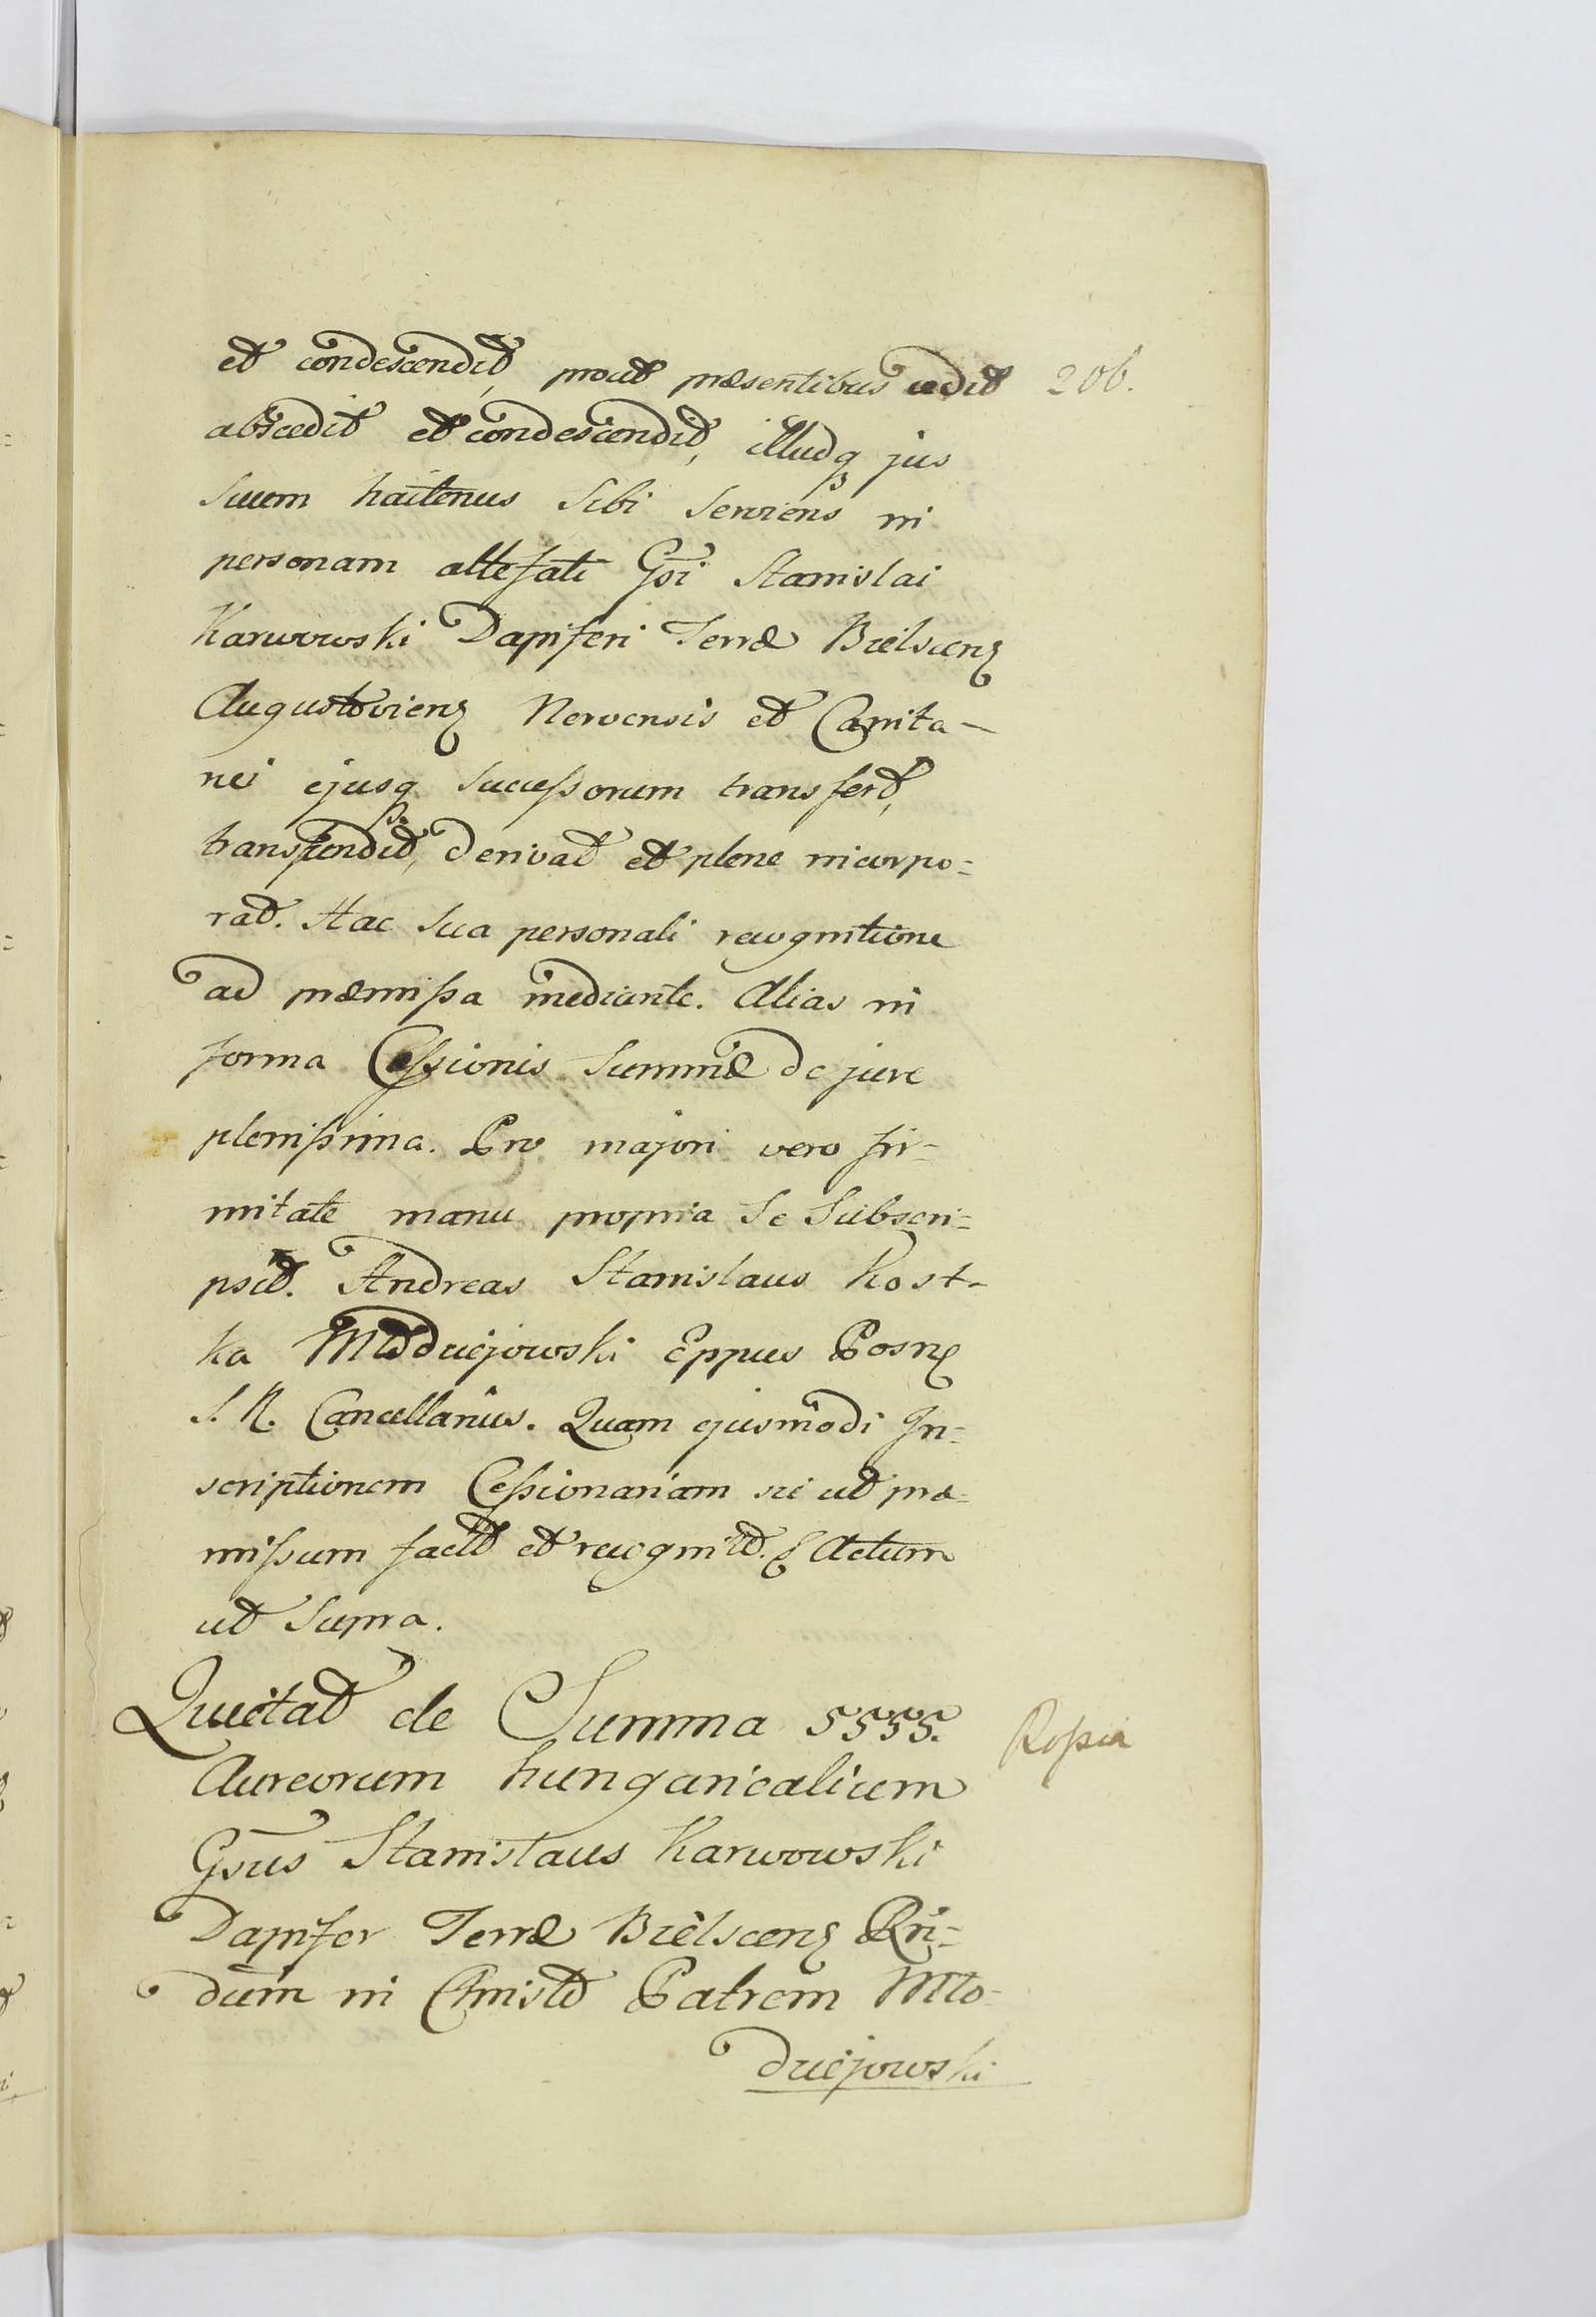 et condescendit, prout præsentibus cedit 206.
abscedit et condescendit, illudq₃ jus
suum hactenus sibi serviens in
personam attefati Gsi Stanislai
Karwowski Dapiferi Terræ Bielscenₓ
Augustoviens Nervensis et Capita-
nei ejusq₃ successorum transfert,
transfendit, derivat et plene incorpo=
rat. Hac sua personali recognitione
ad præmissa mediante. Alias in
forma Cessionis Summæ de jure
plenissima. Pro majori vero fir-
mitate manu propria se subscri=
psit. Andreas Stanislaus Kost-
ka Młodziejowski Eppus Posn
S. R. Cancellarius. Quam ejusmodi In=
scriptionem Cessionariam sic ut præ=
missum factt et recognitt. Actum
ut supra.
Quietat de Summa 5555. Kopia
Aureorum hungaricalium
Gsus Stanislaus Karwowski
Dapifer Terræ Bielscens Rri=
dum in Christo Patrem Mło=
dziejowski